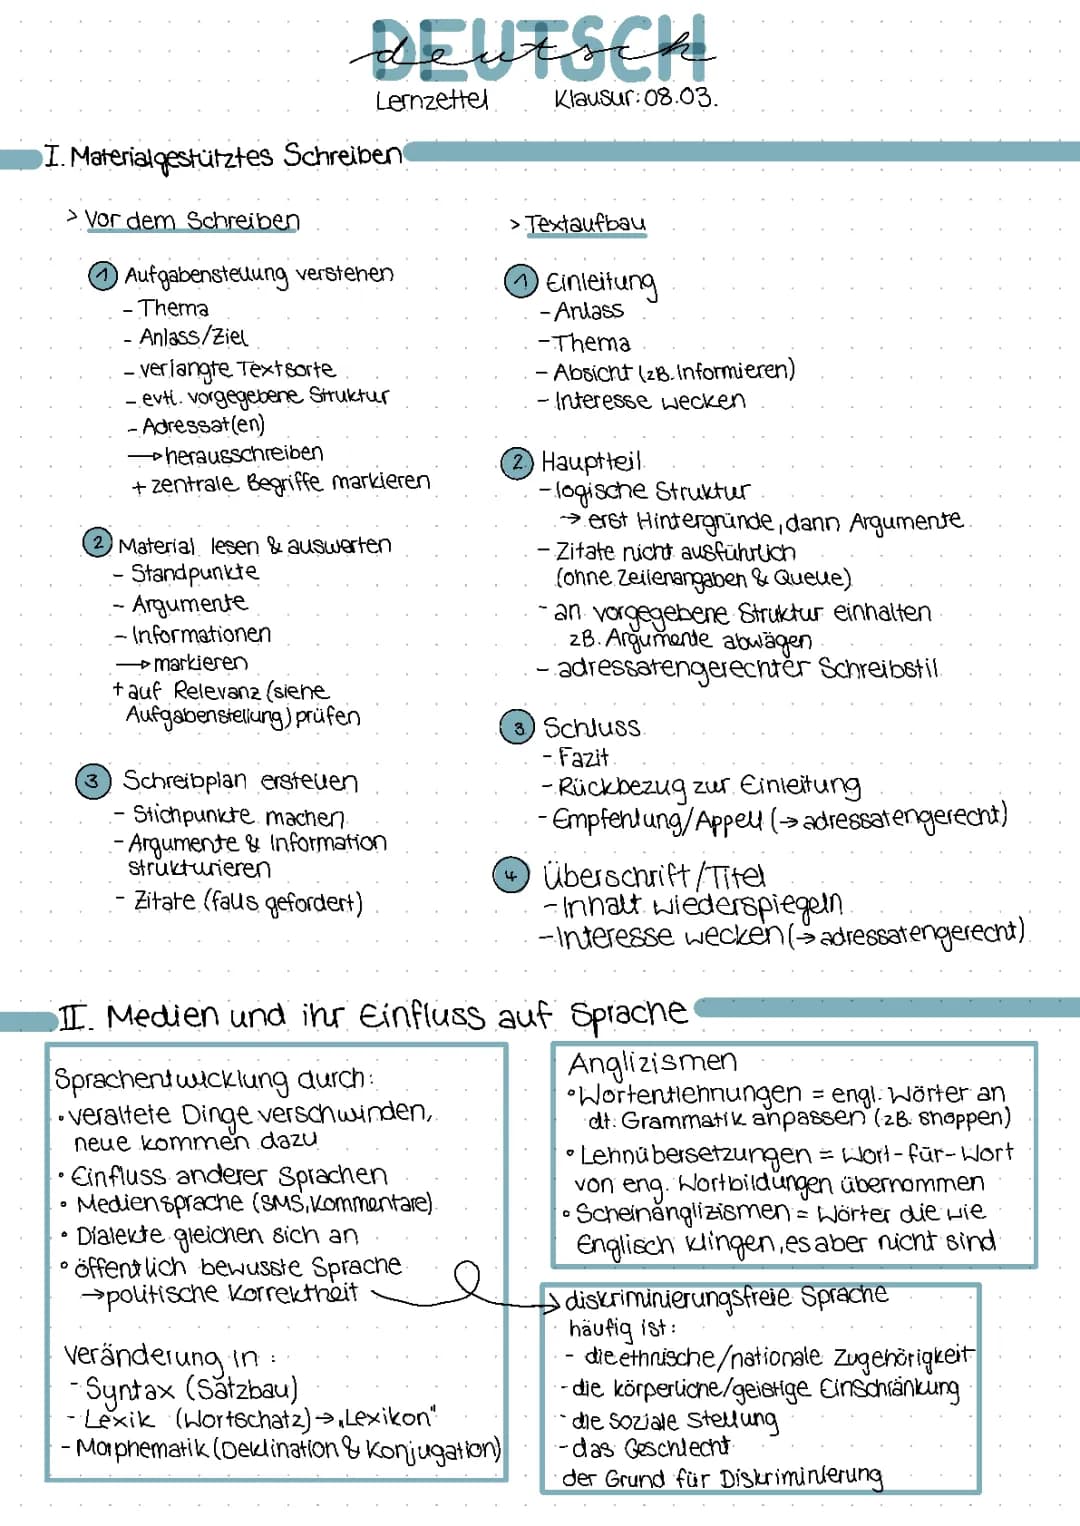 DEUTSCH
deutsch
Lernzettel Klausur: 08.03.
I. Materialgestütztes Schreiben
> Vor dem Schreiben
1 Aufgabenstellung verstehen
- Thema
- Anlass/Ziel
- verlangte Textsorte
- evtl. vorgegebene Struktur
- Adressat(en)
→ herausschreiben
+ zentrale Begriffe markieren
2 Material lesen & auswerten
- Standpunkte
- Argumente
- Informationen
→ markieren
+ auf Relevanz (siehe
Aufgabenstellung) prüfen
3 Schreibplan erstellen
- Stichpunkte machen
- Argumente & Information
strukturieren
- Zitate (falls gefordert)
> Textaufbau
1 Einleitung
- Anlass
- Thema
- Absicht (zB. Informieren)
- Interesse wecken
2 Hauptteil
- logische Struktur
→ erst Hintergründe, dann Argumente
- Zitate nicht ausführlich
(ohne Zeilenangaben & Quelle)
- an vorgegebene Struktur einhalten
zB. Argumente abwägen
- adressatengerechter Schreibstil
3 Schluss
- Fazit
- Rückbezug zur Einleitung
- Empfehlung/Appell (→ adressatengerecht)
4 Überschrift/Titel
- Inhalt wiederspiegeln
- Interesse wecken (→ adressatengerecht)
II. Medien und ihr Einfluss auf Sprache
Sprachentwicklung durch:
• veraltete Dinge verschwinden,
neue kommen dazu
• Einfluss anderer Sprachen
• Mediensprache (SMS, Kommentare)
• Dialekte gleichen sich an
• öffentlich bewusste Sprache
→ politische Korrektheit
Veränderung in:
- Syntax (Satzbau)
- Lexik (Wortschatz) → „Lexikon"
- Morphematik (Deklination & Konjugation)
Anglizismen
• Wortentlehnungen = engl. Wörter an
dt. Grammatik anpassen (zB. shoppen)
• Lehnübersetzungen = Wort-für-Wort
von eng. Wortbildungen übernommen
• Scheinanglizismen = Wörter die wie
Englisch klingen, es aber nicht sind
→ diskriminierungsfreie Sprache
häufig ist:
- die ethnische/nationale Zugehörigkeit
- die körperliche/geistige Einschränkung
- die soziale Stellung
- das Geschlecht
der Grund für Diskriminierung